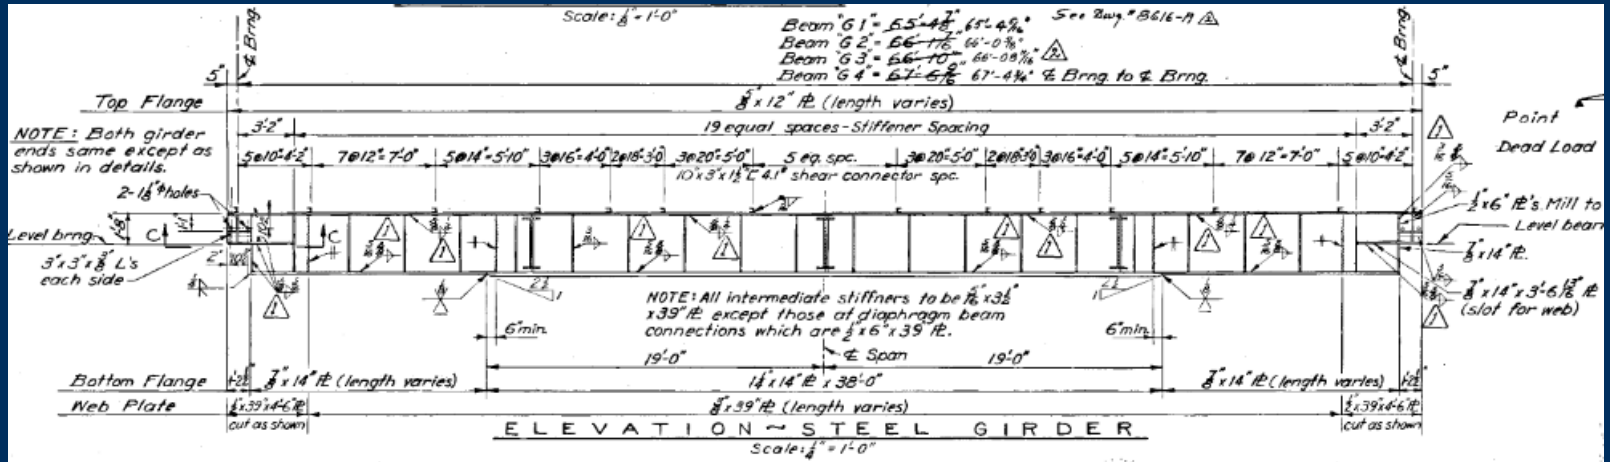 Scale: ⅛" = 1'-0"
Beam "G1" = 65'-4⅞" 65'-4 9/16" See Dwg. # B616-A
Beam "G2" =
Beam "G3" =
Beam "G4" = 67'-4¾" ℄ Brng. to ℄ Brng.
℄ Brng.
℄ Brng.
5"
5"
Top Flange
⅝ x 12" ℔ (length varies)
NOTE: Both girder
ends same except as
shown in details.
3'-2"
19 equal spaces - Stiffener Spacing
3'-2"
Point
Dead Load
5@10"=4'-2" 7@12"=7'-0" 5@14"=5'-10" 3@16"=4'-0" 2@18"=3'-0" 3@20"=5'-0" 5 eq. spc. 3@20"=5'-0" 2@18"=3'-0" 3@16"=4'-0" 5@14"=5'-10" 7@12"=7'-0" 5@10"=4'-2"
10" x 3" x 1½" [ 4.1# shear connector spc.
2 - 1⅛" ϕ holes
½ x 6" ℔'s. Mill to
Level bear
Level brng.
C C
1'-8"
3" x 3" x ⅜" L's
each side
2"
⅞ x 14" ℔.
2½
1
2½
1
⅞" x 14" x 3'-6 13/16" ℔
(slot for web)
NOTE: All intermediate stiffners to be 5/16" x 3½"
x 39" ℔ except those at diaphragm beam
connections which are ½" x 6" x 39" ℔.
6" min.
6" min.
19'-0"
℄ Span
19'-0"
Bottom Flange
1'-2½" ⅞ x 14" ℔ (length varies)
1¼ x 14" ℔ x 38'-0"
⅞ x 14" ℔ (length varies) 1'-2½"
Web Plate
½ x 39" x 4'-6" ℔
cut as shown
⅜ x 39" ℔ (length varies)
½ x 39" x 4'-6" ℔
cut as shown
ELEVATION ~ STEEL GIRDER
Scale: ¼" = 1'-0"